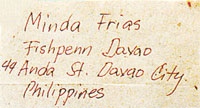 Minda Frias
Fishpenn Davao
44 Anda St. Davao City.
Philippines